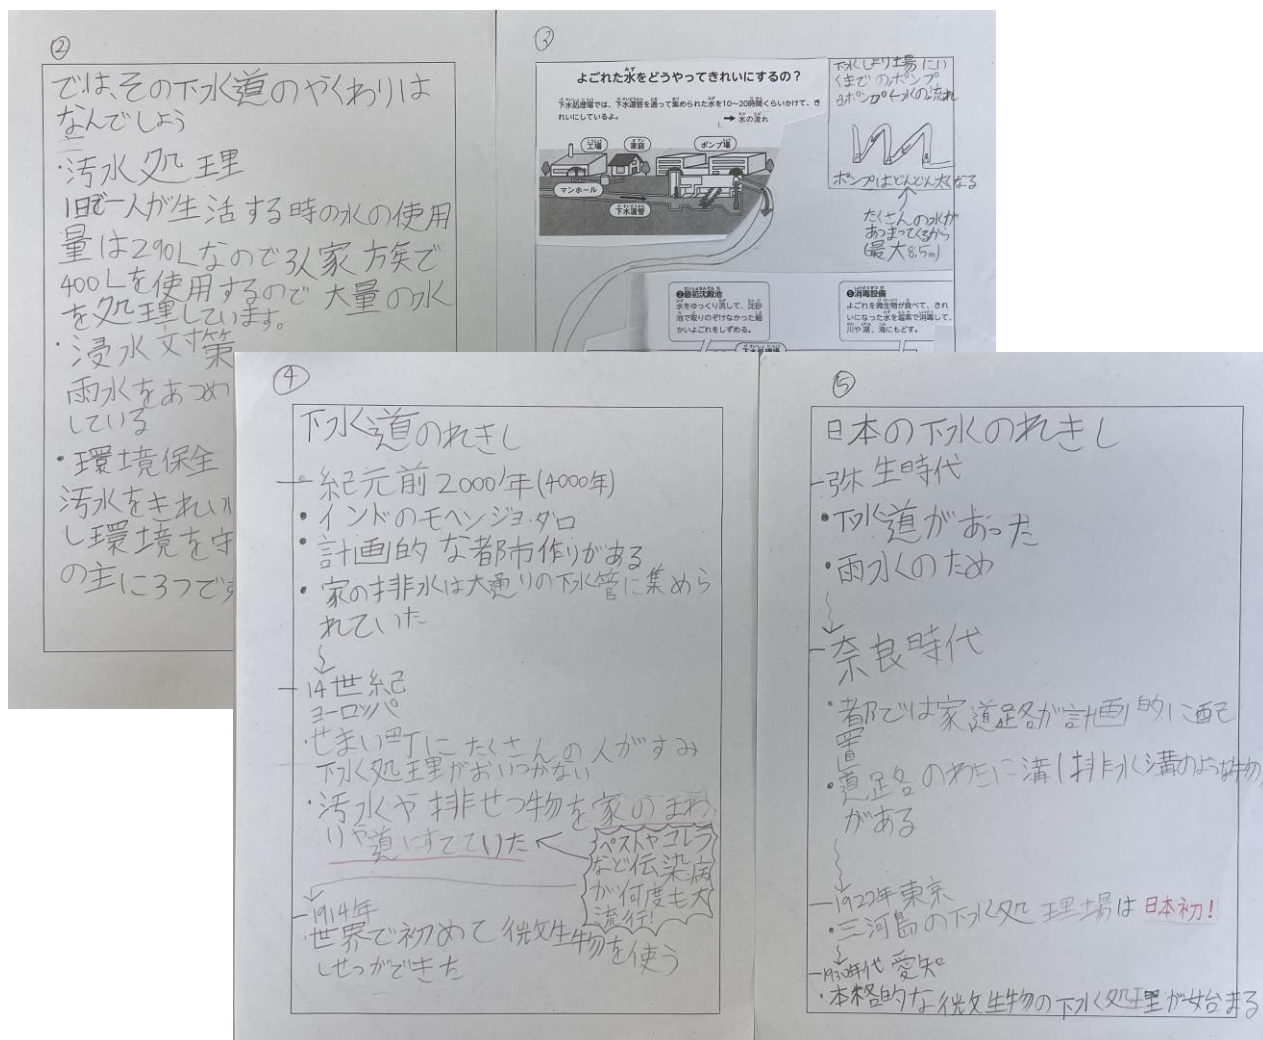 ②
では、その下水道のやくわりは
なんでしょう
・汚水処理
1日で一人が生活する時の水の使用
量は290Lなので3人家族で
400Lを使用するので大量の水
を処理しています。
・浸水対策
雨水をあつめ
している
・環境保全
汚水をきれい
し環境を守
の主に3つです
③
よごれた水をどうやってきれいにするの？
下水処理場では、下水道管を通って集められた水を10～20時間くらいかけて、き
れいにしているよ。
→水の流れ
工場
家庭
ポンプ場
マンホール
下水道管
下水しょり場にい
くまでのポンプ
ポンプ←水の流れ
ポンプはどんどん太くなる
たくさんの水が
あつまってくるから
(最大8.5m)
②最初沈殿池
水をゆっくり流して、沈砂
池で取りのぞけなかった細
かいよごれをしずめる。
⑤消毒設備
よごれを微生物が食べて、きれ
いになった水を塩素で消毒して、
川や湖、海にもどす。
下水処理場
④
下水道のれきし
紀元前2000年(4000年)
・インドのモヘンジョ・ダロ
・計画的な都市作りがある
・家の排水は大通りの下水管に集めら
れていた
14世紀
ヨーロッパ
・せまい町にたくさんの人がすみ
下水処理がおいつかない
・汚水や排せつ物を家のまわ
りや道にすてていた
ペストやコレラ
など伝染病
が何度も大
流行!
1914年
世界で初めて微生物を使う
しせつができた
⑤
日本の下水のれきし
弥生時代
・下水道があった
・雨水のため
奈良時代
・都では家道路が計画的に配
置
・道路のわきに溝(排水溝のような物)
がある
1922年東京
・三河島の下水処理場は日本初!
1930年代 愛知
・本格的な微生物の下水処理が始まる